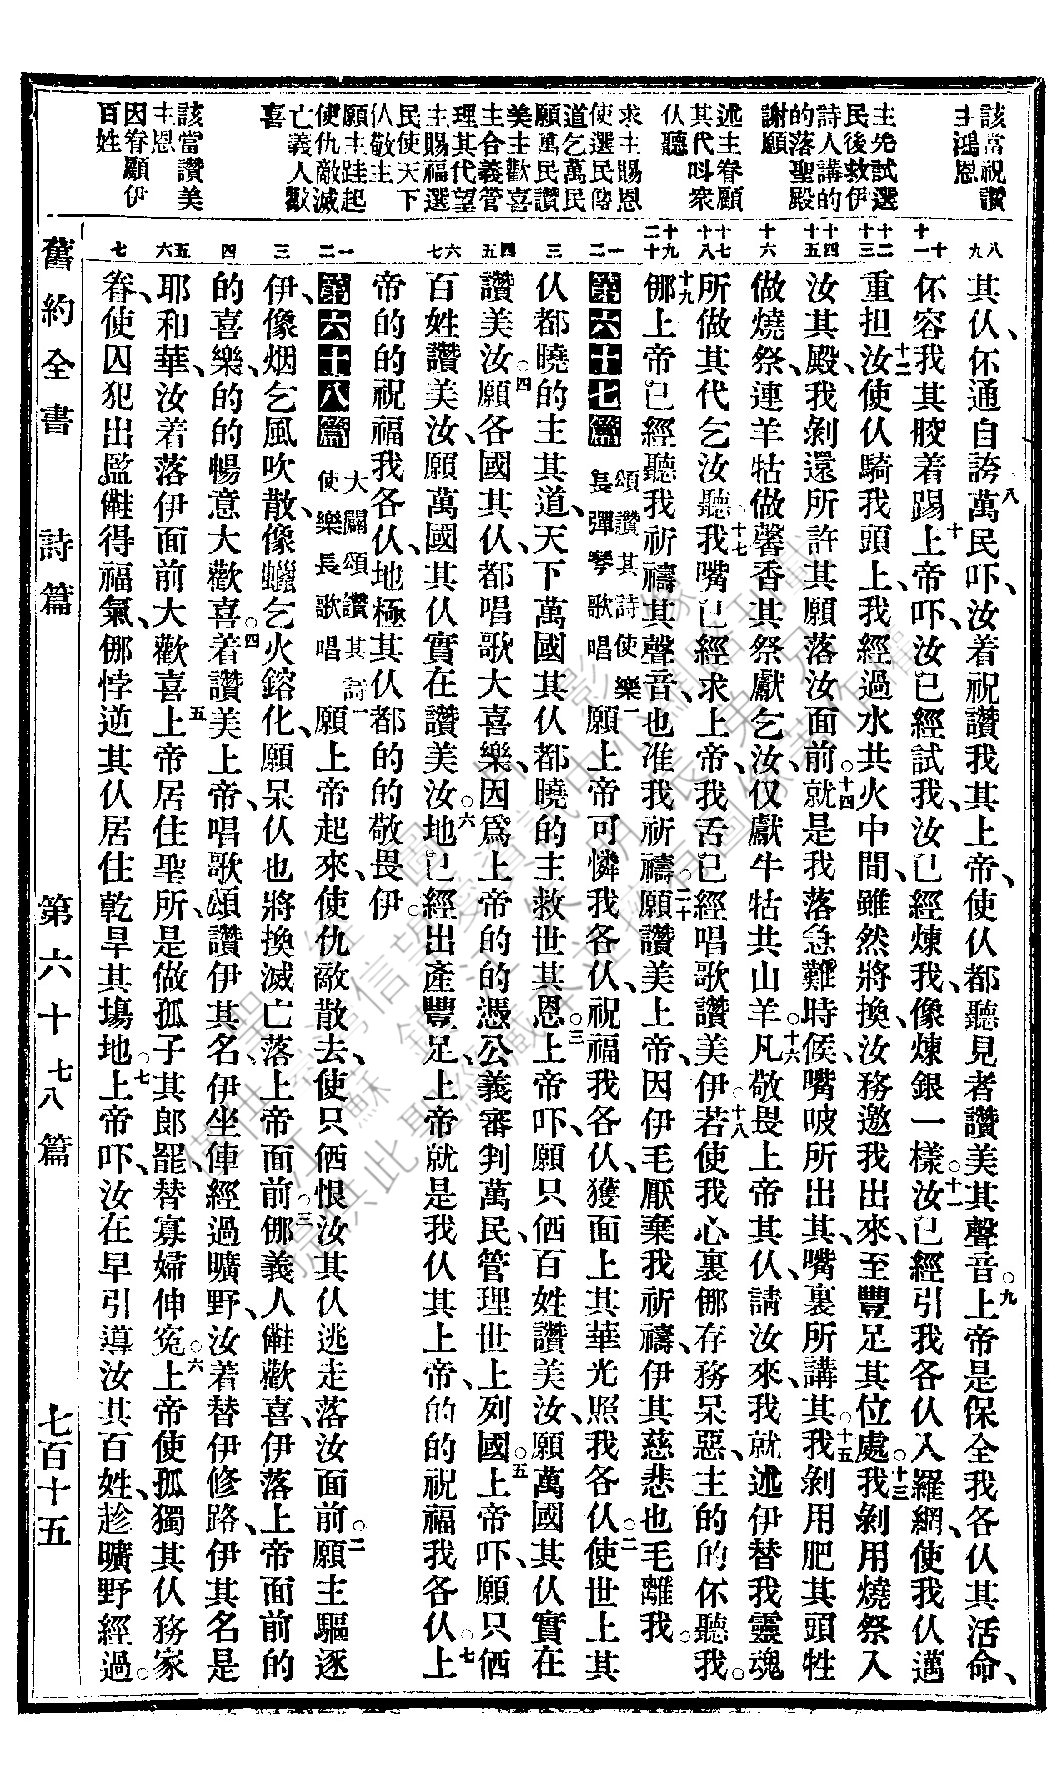 該當祝讚
主鴻恩
主先試選
民後救伊
詩人講的
的落聖殿
謝願
述主眷顧
其代叫衆
仈聽
求主賜恩
使選民傳
道乞萬民
願萬民讚
美主歡喜
主合義管
理其代望
主賜福選
民使天下
仈敬主
願主㾀起
使仇敵滅
亡義人歡
喜
該當讚美
主恩
因眷顧伊
百姓
其仈、伓通自誇、八萬民吓、汝着祝讚我其上帝、使仈都聽見者讚美其聲音。九上帝是保全我各仈其活命、
伓容我其骹着踢、十上帝吓、汝已經試我、汝已經煉我、像煉銀一樣。十一汝已經引我各仈入羅網、使我仈邁
重担、十二汝使仈騎我頭上、我經過水共火中間、雖然將換、汝務邀我出來、至豐足其位處。十三我剝用燒祭入
汝其殿、我剝還所許其願落汝面前。十四就是我落急難時候、嘴唆所出其、嘴裏所講其。十五我剝用肥其頭牲
做燒祭、連羊牯做馨香其祭獻乞汝、仅獻牛牯共山羊。十六凡敬畏上帝其仈、請汝來、我就述伊替我靈魂
所做其代乞汝聽。十七我嘴已經求上帝、我舌已經唱歌讚美伊。十八若使我心裏㑚存務呆惡、主的的伓聽我。
十九㑚上帝已經聽我祈禱其聲音、也准我祈禱。二十願讚美上帝、因伊毛厭棄我祈禱、伊其慈悲也毛離我。
第六十七篇 頌讚其詩使樂長彈琴歌唱 一願上帝可憐我各仈、祝福我各仈、獲面上其華光照我各仈。二使世上其
仈都曉的主其道、天下萬國其仈都曉的主救世其恩。三上帝吓、願只㐻百姓讚美汝、願萬國其仈實在
讚美汝。四願各國其仈、都唱歌大喜樂、因爲上帝的的憑公義審判萬民、管理世上列國。五上帝吓、願只㐻
百姓讚美汝、願萬國其仈實在讚美汝。六地已經出產豐足、上帝就是我仈其上帝、的的祝福我各仈。七上
帝的的祝福我各仈、地極其仈都的的敬畏伊。
第六十八篇 大闢頌讚其詩使樂長歌唱 一願上帝起來、使仇敵散去、使只㐻恨汝其仈逃走落汝面前。二願主驅逐
伊、像烟乞風吹散、像蠟乞火鎔化、願呆仈也將換滅亡落上帝面前。三㑚義人㒄歡喜、伊落上帝面前的
的喜樂、的的暢意大歡喜。四着讚美上帝、唱歌頌讚伊其名、伊坐俥經過曠野、汝着替伊修路、伊其名是
耶和華、汝着落伊面前大歡喜。五上帝居住聖所、是做孤子其郎罷、替寡婦伸寃。六上帝使孤獨其仈務家
眷、使囚犯出監㒄得福氣、㑚悖逆其仈居住乾旱其塲地。七上帝吓、汝在早引導汝其百姓、趁曠野經過。
舊約全書 詩篇 第六十七八篇 七百十五